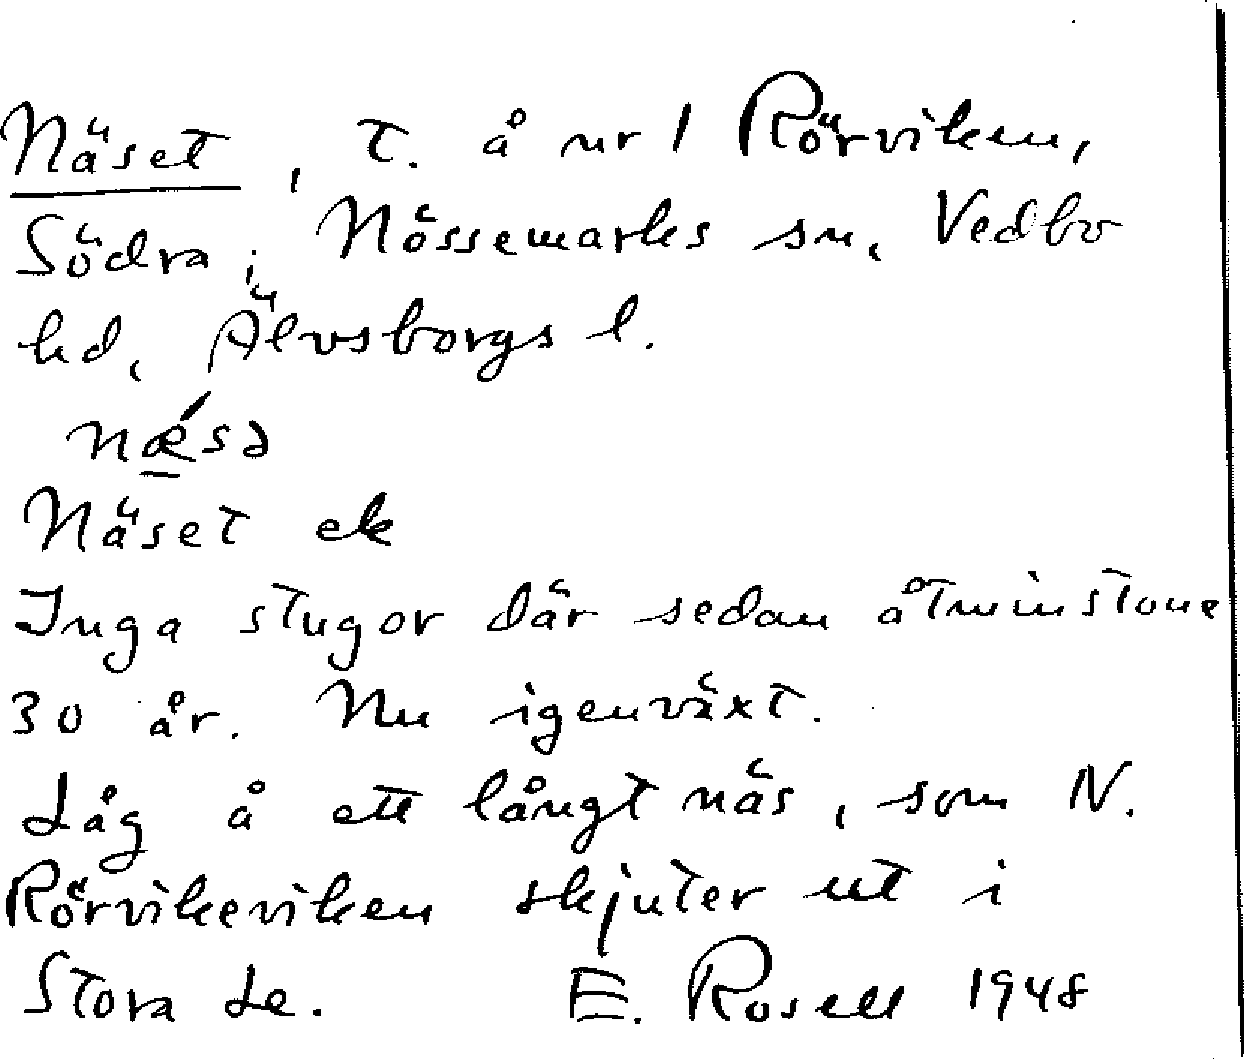 Näset, t. å nr 1 Rörviken,
Södra, Nössemarks sn, Vedbo
hd, Älvsborgs l.
nǽ̲sə
Näset ek
Inga stugor där sedan åtminstone
30 år. Nu igenväxt.
Låg å ett långt näs, som N.
Rörvikeviken skjuter ut i
Stora Le. E. Rosell 1948